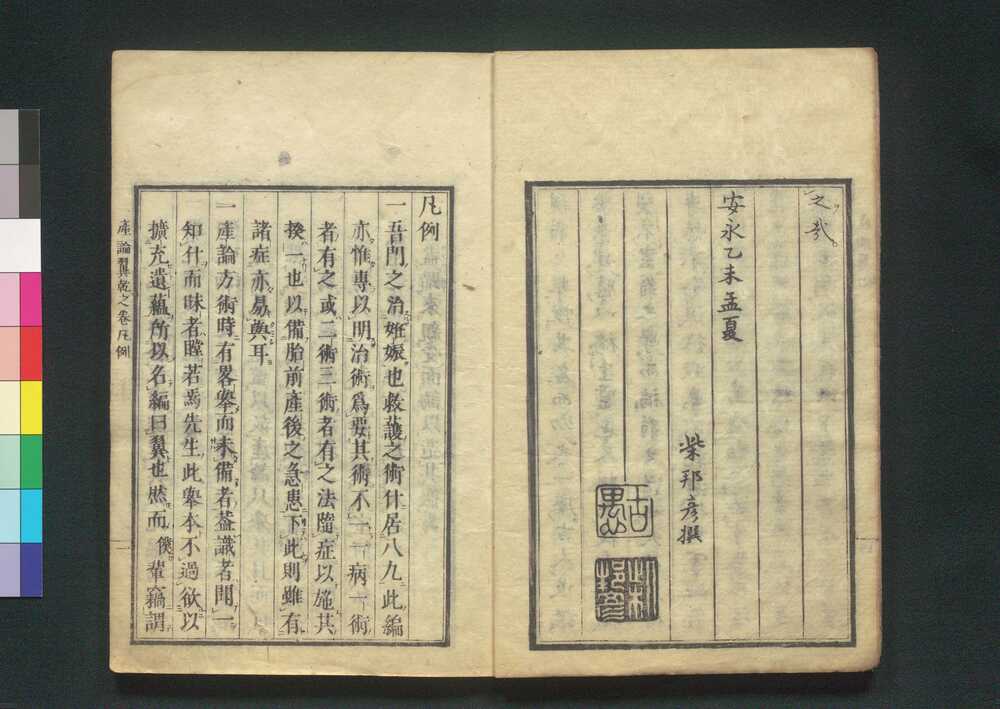 之哉
安永乙未孟夏
柴邦彦撰
凡例
一吾門之治妊娠也救護之術什居八九此編
亦惟專以明治術爲要其術不一一病一術
者有之或二術三術者有之法隨症以施其
揆一也以備胎前產後之急患下此則雖有
諸症亦易與耳
一產論方術時有畧擧而未備者蓋識者聞一
知什而昧者瞠若焉先生此擧本不過欲以
擴充遺蘊所以名編曰翼也然而僕輩竊謂
產論翼乾之卷凡例